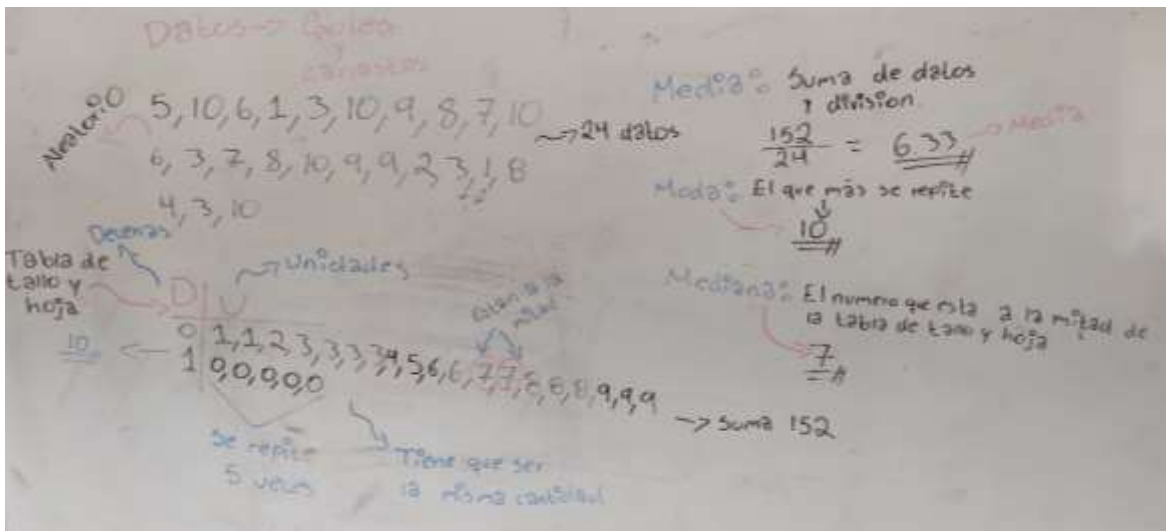 Datos → Goles
y
canastas
Aleatorio
5, 10, 6, 1, 3, 10, 9, 8, 7, 10
6, 3, 7, 8, 10, 9, 9, 2, 3, 1, 8
4, 3, 10
→ 24 datos
Decenas
Unidades
Tabla de
tallo y
hoja
D | U
Estan a la
mitad
0 | 1, 1, 2, 3, 3, 3, 3, 4, 5, 6, 6, 7, 7, 8, 8, 8, 9, 9, 9
1 | 0, 0, 0, 0, 0
10
→ Suma 152
Se repite
5 veces
Tiene que ser
la misma cantidad
Media: Suma de datos
y division
152/24 = 6.33 → Media
Moda: El que más se repite
10
Mediana: El numero que esta a la mitad de
la tabla de tallo y hoja
7